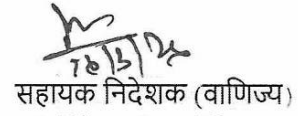 सहायक निदेशक (वाणिज्य)